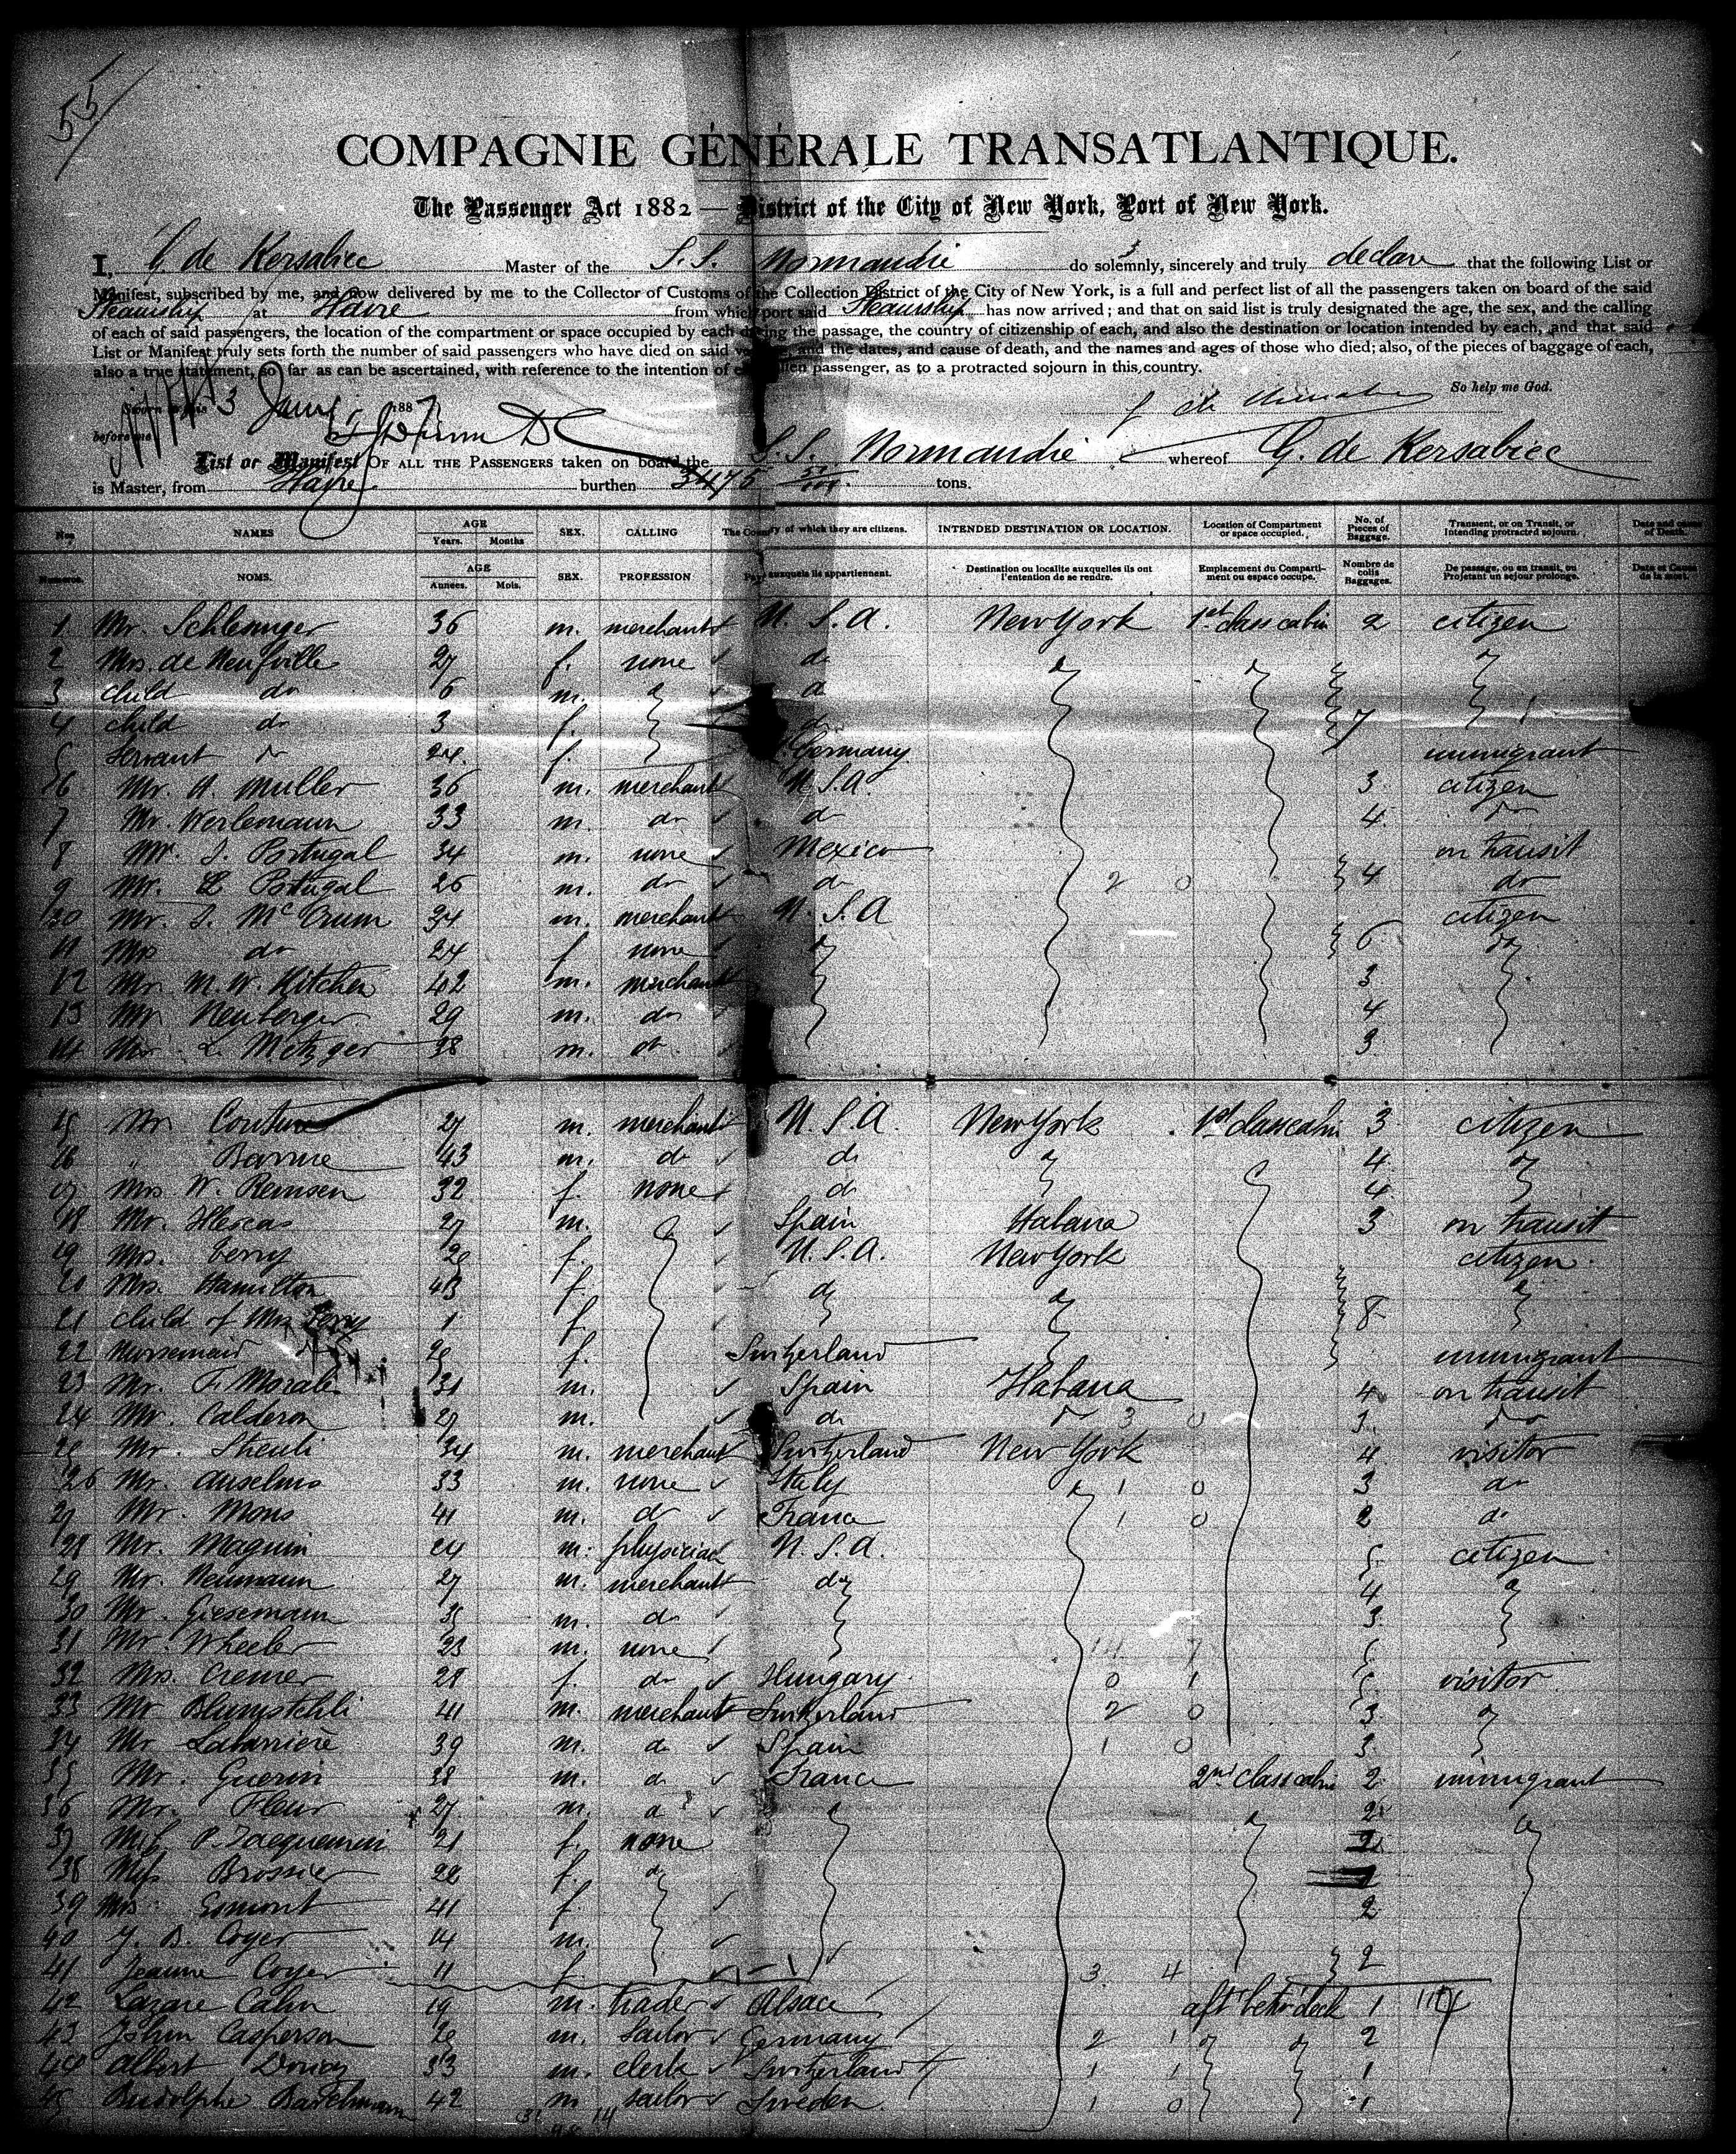 55
COMPAGNIE GÉNÉRALE TRANSATLANTIQUE.
The Passenger Act 1882 — District of the City of New York, Port of New York.
I, G. de Kersabiec Master of the S.S. Normandie do solemnly, sincerely and truly declare that the following List or
Manifest, subscribed by me, and now delivered by me to the Collector of Customs of the Collection District of the City of New York, is a full and perfect list of all the passengers taken on board of the said
Steamship at Havre from which port said Steamship has now arrived; and that on said list is truly designated the age, the sex, and the calling
of each of said passengers, the location of the compartment or space occupied by each during the passage, the country of citizenship of each, and also the destination or location intended by each, and that said
List or Manifest truly sets forth the number of said passengers who have died on said voyage, and the dates, and cause of death, and the names and ages of those who died; also, of the pieces of baggage of each,
also a true statement, so far as can be ascertained, with reference to the intention of each alien passenger, as to a protracted sojourn in this country.
So help me God.
Sworn to this 3 Jany 1887
before me
List or Manifest OF ALL THE PASSENGERS taken on board the S.S. Normandie whereof G. de Kersabiec
is Master, from Havre burthen 3475 tons.
Nos NAMES AGE Years. Months SEX. CALLING The Country of which they are citizens. INTENDED DESTINATION OR LOCATION. Location of Compartment or space occupied. No. of Pieces of Baggage. Transient, or on Transit, or Intending protracted sojourn. Date and cause of Death.
Numeros. NOMS. AGE Annees. Mois. SEX. PROFESSION Pays auxquels ils appartiennent. Destination ou localite auxquelles ils ont l'entention de se rendre. Emplacement du Comparti-ment ou espace occupe. Nombre de colis Baggages. De passage, ou en transit, ou Projetant un sejour prolonge. Date et Cause de la mort.
1 Mr. Schlesinger 36 m. merchant U.S.A. New York 1st class cabin 2 citizen
2 Mrs. de Neufville 27 f. none do
3 child do 6 m. do
4 child do 3 f. do 7
5 Servant do 24 f. Germany immigrant
6 Mr. A. Muller 36 m. merchant U.S.A. 3 citizen
7 Mr. Werlemann 33 m. do do 4 do
8 Mr. J. Portugal 34 m. none Mexico on transit
9 Mr. Portugal 26 m. do do 2 0 4 do
10 Mr. J. McCrum 34 m. merchant U.S.A citizen
11 Mrs do 24 f none do 6 do
12 Mr. M. W. Kitchen 42 m. merchant 3
13 Mr Neuberger 29 m. do 4
14 Mr. L. Metzger 38 m. do 3
15 Mr 27 m. merchant U.S.A. New York 1st class cabin 3 citizen
16 " 43 m. do do 4
17 Mrs W. Remsen 32 f. none do 4
18 Mr. Illescas 27 m. Spain Habana 3 on transit
19 Mrs. Terry f. U.S.A. New York citizen
20 Mrs. Hamilton 43 f. do
21 child of Mrs Terry 1 f. 8
22 Nursemaid f. Switzerland immigrant
23 Mr. F. Morales 31 m. Spain Habana 4 on transit
24 Mr. Calderon 27 m. do do 3 0 3 do
25 Mr. Streuli 34 m. merchant Switzerland New York 4 visitor
26 Mr. Anselmo 33 m. none Italy 1 0 3 do
27 Mr. Mons 41 m. do France 1 0 2 do
28 Mr. Maguin 24 m. physician U.S.A. 5 citizen
29 Mr. Neumann 27 m. merchant do 4
30 Mr. Giesemann 35 m. do 3
31 Mr. Wheeler 23 m. none 14 7
32 Mrs. Cremer f. do Hungary 0 1 visitor
33 Mr Blumstchli 41 m. merchant Switzerland 2 0 3
34 Mr Labarrière 39 m. do Spain 1 0 3
35 Mr. Guerin 38 m. do France 2nd class cabin 2 immigrant
36 Mr. Fleur 27 m. do 2
37 Miss P. Jacquemin 21 f. none 2
38 Miss Brossier 22 f. do
39 Mrs. Esmont 41 f. 2
40 J. B. Coyer 14 m.
41 Jeanne Coyer 11 f. 3 4 2
42 Lazare Cahn 19 m. trader Alsace aft betw deck 1
43 John Casperson m. Sailor Germany 2 1 2
44 Albert 33 m. clerk Switzerland 1 1 1
45 Rudolphe 42 m sailor Sweden 1 0 1